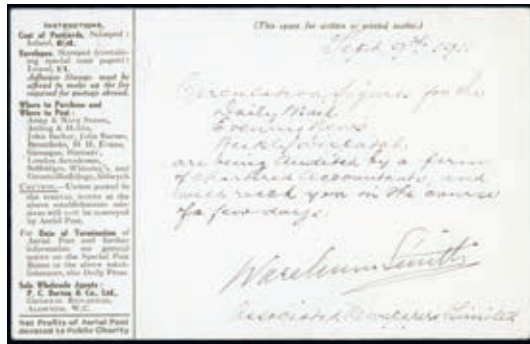 INSTRUCTIONS.
Cost of Postcards, Stamped:
Inland,
Envelopes. Stamped (contain-
ing special note paper):
Inland,
Adhesive Stamps must be
affixed to make up the fee
required for postage abroad.
Where to Purchase and
Where to Post:
Army & Navy Stores,
John Barker, John Barnes,
D. H. Evans,
Gamages, Harrods',
London Aerodrome,
Selfridges, Whiteley's, and
CAUTION.—Unless posted in
the special boxes at the
above establishments
will not be conveyed
by Aerial Post.
For Date of Termination of
Aerial Post and further
information see general
notice on the Special Post
Boxes in the above estab-
lishments, also Daily Press.
Sole Wholesale Agents:
F. C. Barton & Co., Ltd.,
ALDWYCH, W.C.
Net Profits of Aerial Post
devoted to Public Charity
(This space for written or printed matter.)
Sept 9th 1911
Circulation figures for the
Daily Mail
Evening News
Weekly Dispatch
are being audited by a firm
of Chartered Accountants, and
will reach you in the course
of a few days.
Wareham Smith
Associated Newspapers Limited